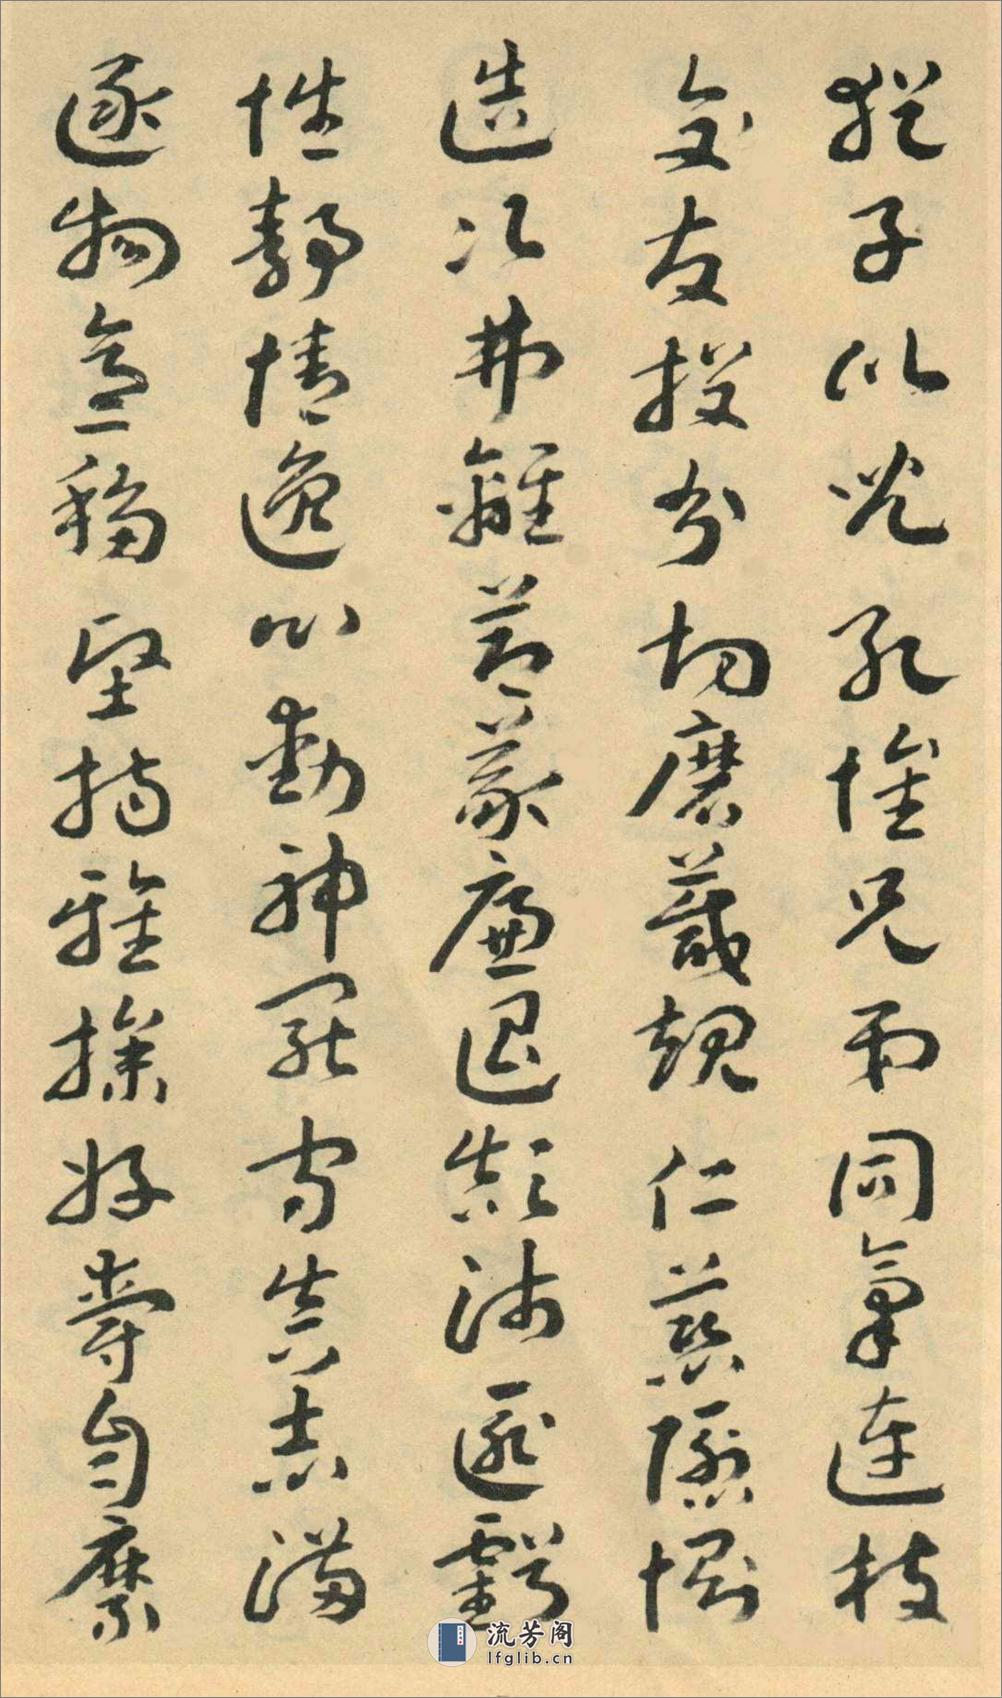 猶子比兒孔懷兄弟同氣連枝
交友投分切磨箴規仁慈隱惻
造次弗離節義廉退顛沛匪虧
性靜情逸心動神疲守真志滿
逐物意移堅持雅操好爵自縻
流芳阁
lfglib.cn